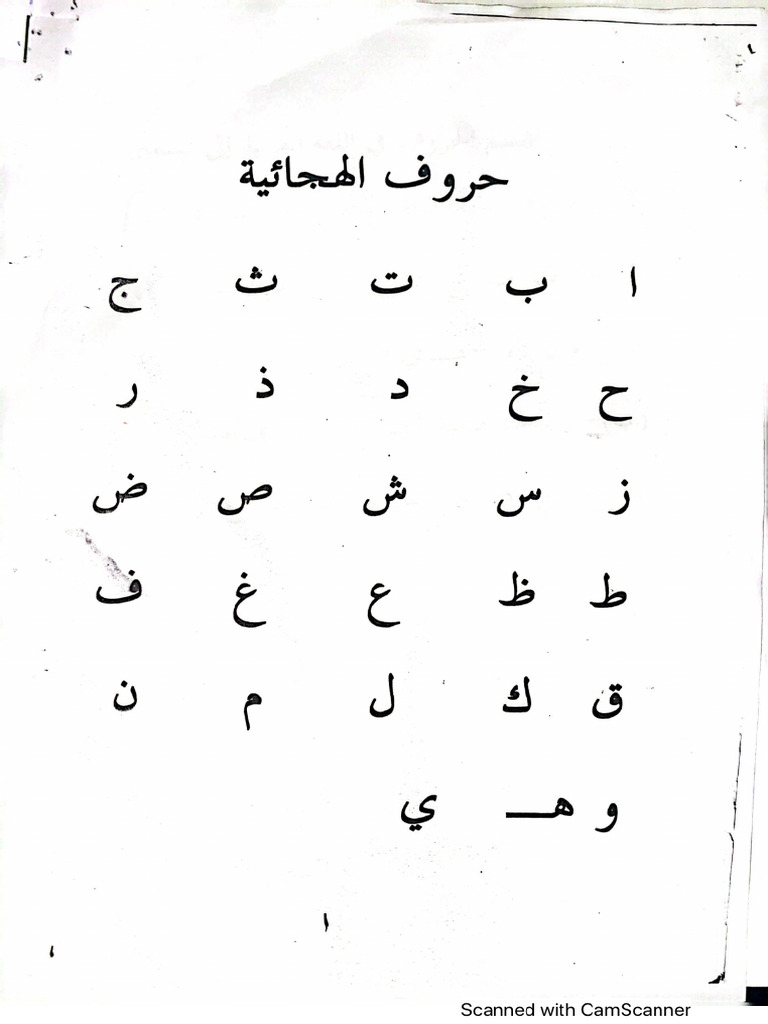 حروف الهجائية
ا ب ت ث ج
ح خ د ذ ر
ز س ش ص ض
ط ظ ع غ ف
ق ك ل م ن
و هـ ي
١
Scanned with CamScanner